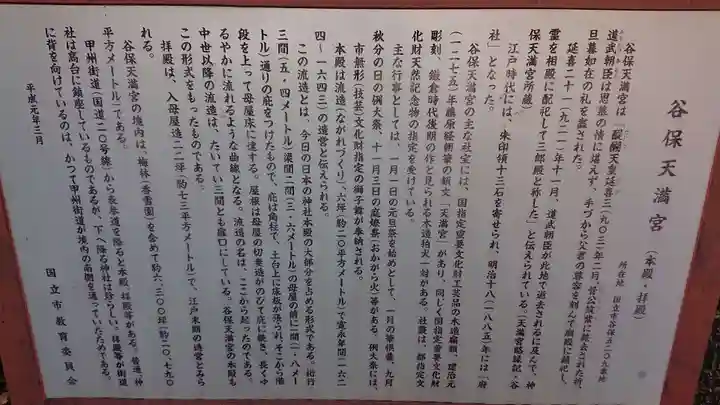 谷保天満宮
(本殿・拝殿)
所在地 国立市谷保五二〇九番地
谷保天満宮は「醍醐天皇延喜三(九〇三)年二月、菅公筑紫に薨去された折、
道武朝臣は思慕の情に堪えず、手づから父君の尊容を刻んで廟殿に鎮祀し、
旦暮如在の礼を盡された。
延喜二十一(九二一)年十一月、道武朝臣が此地で逝去されるに及んで、神
霊を相殿に配祀して三郎殿と称した」と伝えられている。(天満宮略縁記・谷
保天満宮所蔵)
江戸時代には、朱印領十三石を寄せられ、明治十八(一八八五)年には「府
社」となった。
谷保天満宮の主な社宝には、国指定重要文化財工芸品の木造扁額、建治元
(一二七五)年藤原経朝筆の額文「天満宮」があり、同じく国指定重要文化財
彫刻、鎌倉時代後期の作と見られる木造狛犬一対がある。社叢は、都指定文
化財天然記念物の指定を受けている。
主な行事としては、一月一日の元旦祭を始めとして、一月の筆供養、九月
秋分の日の例大祭、十一月三日の庭燎祭(おかがら火)等がある。例大祭には、
市無形(技芸)文化財指定の獅子舞が奉納される。
本殿は流造(ながれづくり)、六坪(約二〇平方メートル)で寛永年間(一六二
四〜一六四三)の造営と伝えられる。
この流造とは、今日の日本の神社本殿の大部分を占める形式である。桁行
三間(五・四メートル)梁間二間(三・六メートル)の母屋の前に二間(一・八メー
トル)通りの庇をつけたもので、庇は角柱で、土台上に床板が張られ、そこから階
段を上って母屋床に達する。屋根は母屋の切妻造がのびて庇に続き、長くゆ
るやかに流れるような曲線となる。流造の名は、ここから起ったのである。
中世以降の流造は、たいてい三間とも扉口にしている。谷保天満宮の本殿も
この形式をもったものである。
拝殿は、入母屋造二二坪(約七三平方メートル)で、江戸末期の造営とみら
れる。
谷保天満宮の境内は、梅林(香雪園)を含めて約六、三〇〇坪(約二〇、七九〇
平方メートル)である。
甲州街道(国道二〇号線)から長参道を降ると本殿、拝殿等がある。普通、神
社は高台に鎮座しているものであるが、下へ降る神社は珍らしい。拝殿等が街道
に背を向けているのは、かつて甲州街道が境内の南側を通っていたためである。
平成元年三月
国立市教育委員会